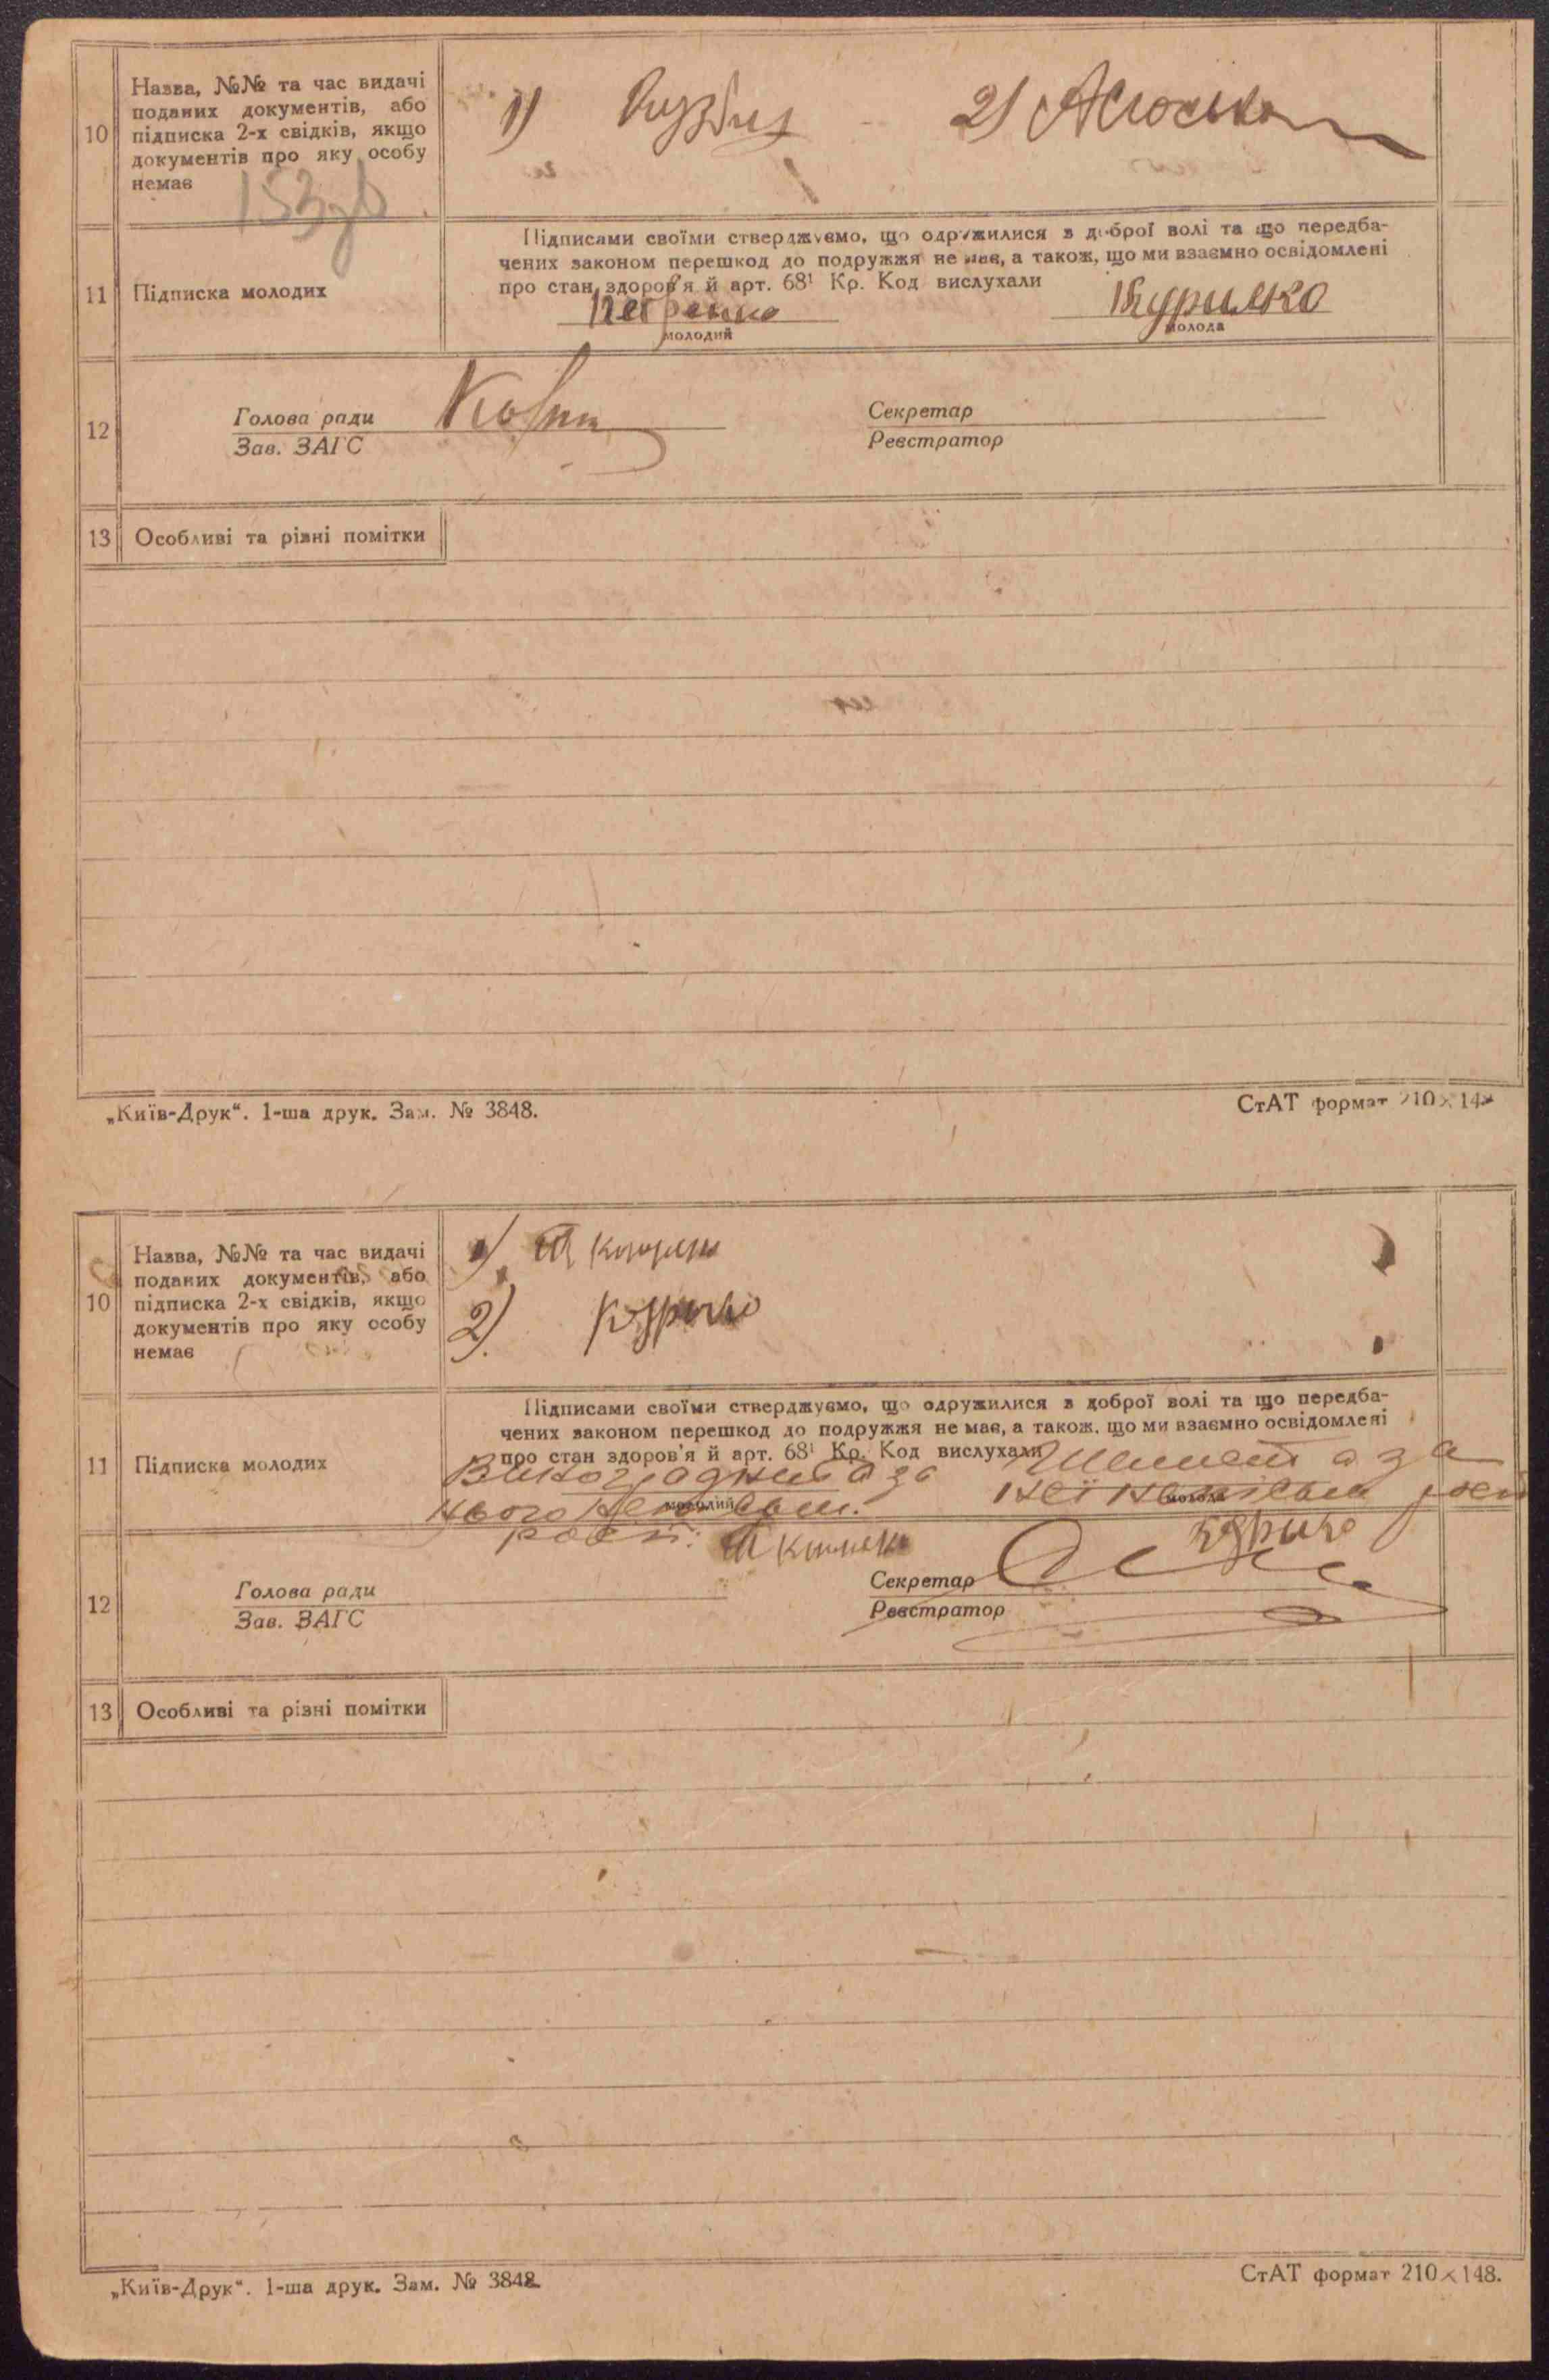 10
Назва, №№ та час видачі
поданих документів, або
підписка 2-х свідків, якщо
документів про яку особу
немає
1)
2)
11
Підписка молодих
Підписами своїми стверджуємо, що одружилися з доброї волі та що передба-
чених законом перешкод до подружжя не має, а також, що ми взаємно освідомлені
про стан здоров'я й арт. 68¹ Кр. Код вислухали
Петренко
Курилко
молодий
молода
12
Голова ради
Зав. ЗАГС
Секретар
Реєстратор
13
Особливі та різні помітки
„Київ-Друк“. 1-ша друк. Зам. № 3848.
СтАТ формат 210×148
10
Назва, №№ та час видачі
поданих документів, або
підписка 2-х свідків, якщо
документів про яку особу
немає
1)
2)
11
Підписка молодих
Підписами своїми стверджуємо, що одружилися з доброї волі та що передба-
чених законом перешкод до подружжя не має, а також, що ми взаємно освідомлені
про стан здоров'я й арт. 68¹ Кр. Код вислухали
а за
а за
нього
неї
молодий
молода
12
Голова ради
Зав. ЗАГС
Секретар
Реєстратор
13
Особливі та різні помітки
„Київ-Друк“. 1-ша друк. Зам. № 3848.
СтАТ формат 210×148.